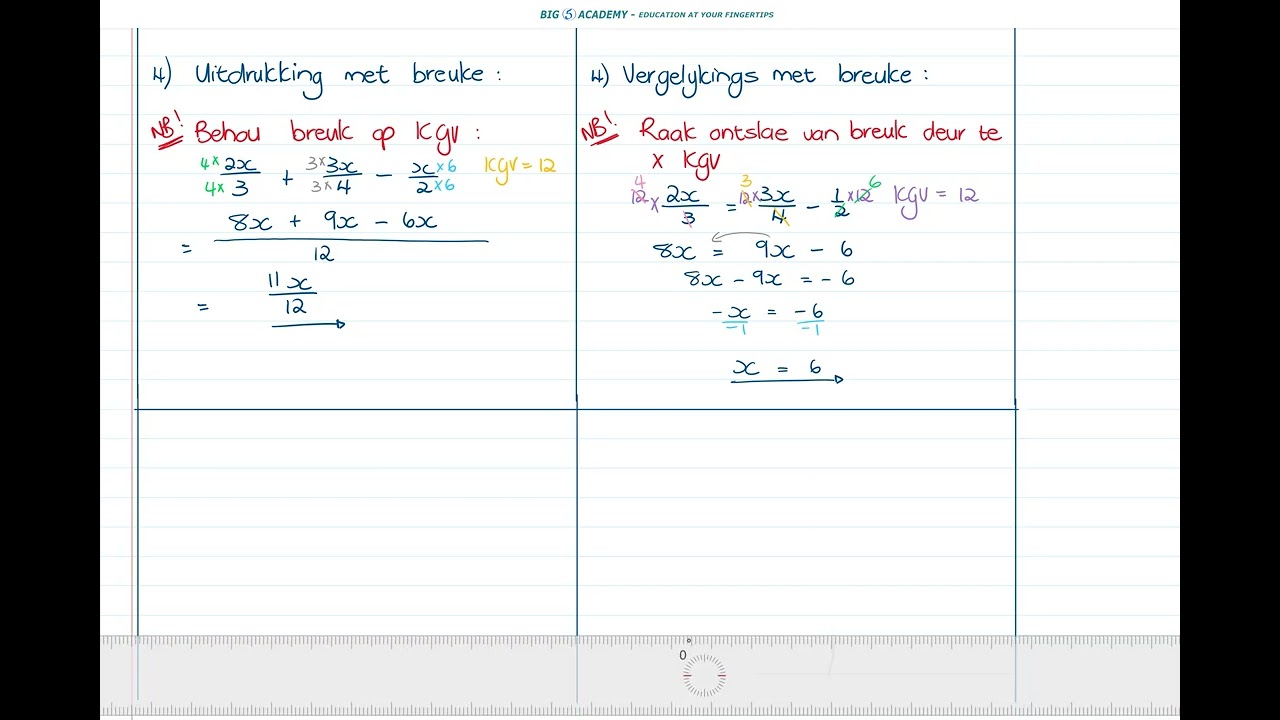 BIG 5 ACADEMY - EDUCATION AT YOUR FINGERTIPS
4) Uitdrukking met breuke :
NB! Behou breuk op KGV :
4× 2x / 4× 3 + 3× 3x / 3× 4 - x ×6 / 2 ×6 KGV = 12
= 8x + 9x - 6x / 12
= 11x / 12
4) Vergelykings met breuke :
NB! Raak ontslae van breuk deur te
x KGV
4 3 6
12 × 2x / 3 = 12 × 3x / 4 - 1 / 2 × 12 KGV = 12
8x = 9x - 6
8x - 9x = - 6
-x / -1 = -6 / -1
x = 6
0